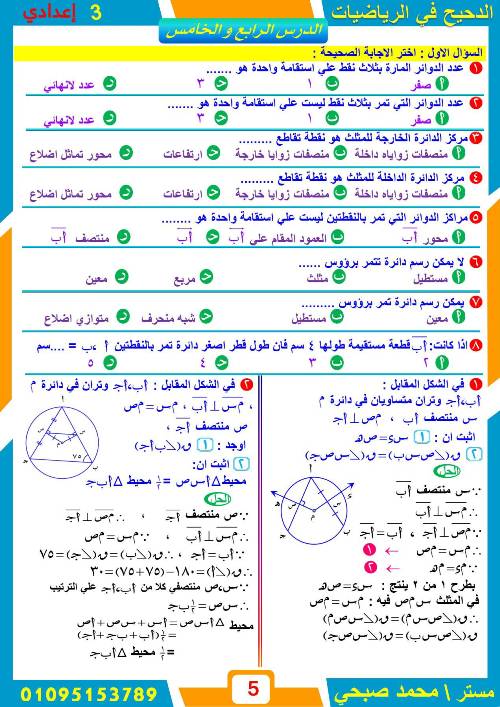 الدحيح في الرياضيات
3 إعدادي
الدرس الرابع و الخامس
السؤال الاول : اختر الاجابة الصحيحة :
١ عدد الدوائر المارة بثلاث نقط علي استقامة واحدة هو .......
أ صفر ب ١ ج ٣ د عدد لانهائي
٢ عدد الدوائر التي تمر بثلاث نقط ليست علي استقامة واحدة هو .......
أ صفر ب ١ ج ٣ د عدد لانهائي
٣ مركز الدائرة الخارجة للمثلث هو نقطة تقاطع .........
أ منصفات زواياه داخلة ب منصفات زوايا خارجة ج ارتفاعات د محور تماثل اضلاع
٤ مركز الدائرة الداخلة للمثلث هو نقطة تقاطع .........
أ منصفات زواياه داخلة ب منصفات زوايا خارجة ج ارتفاعات د محور تماثل اضلاع
٥ مراكز الدوائر التي تمر بالنقطتين ليست علي استقامة واحدة هو ........
أ محور أب ب العمود المقام علي أب ج أب د منتصف أب
٦ لا يمكن رسم دائرة تتمر برؤوس ......
أ مستطيل ب مثلث ج مربع د معين
٧ يمكن رسم دائرة تمر برؤوس .........
أ معين ب مستطيل ج شبه منحرف د متوازي اضلاع
٨ اذا كانت: أب قطعة مستقيمة طولها ٤ سم فان طول قطر اصغر دائرة تمر بالنقطتين أ ،ب = ....سم
أ ٢ ب ٣ ج ٤ د ٥
١ في الشكل المقابل :
أب،أج وتران متساويان في دائرة م
س منتصف أب ، م ص⊥أج
اثبت ان : ١ س ء = ص ه
٢ ق(∠س ص ب) = ق(∠س ص ج)
الحل
∵ س منتصف أب
∴ م س⊥أب
∵ م ص⊥أج ، أب = أج
∴ م س = م ص ← ١
∵ م ء = م ه ← ٢
بطرح ١ من ٢ ينتج : س ء = ص ه
في المثلث س م ص فيه : م س = م ص
٢ في الشكل المقابل : أب،أج وتران في دائرة م
، م س⊥أب ، م س = م ص
ص منتصف أج ،
اوجد : ١ ق(∠ب أ ج)
٢ اثبت ان:
محيط △أ س ص = ½ محيط △أ ب ج
الحل
∵ ص منتصف أج ∴ م ص⊥أج
، ∵ م س⊥أب ، ∵ م س = م ص
∴ أب = أج ، ∴ ق(∠ب) = ق(∠ج) = ٧٥
∴ ق(∠أ) = ١٨٠−(٧٥+٧٥) = ٣٠
∵ س،ص منتصفي كلا من أب،أج علي الترتيب
∴ س ص = ½ ب ج
محيط △أ س ص = أ س + س ص + أ ص
= ½(أب + ب ج + أج)
= ½ محيط △أ ب ج
مستر / محمد صبحي
5
01095153789